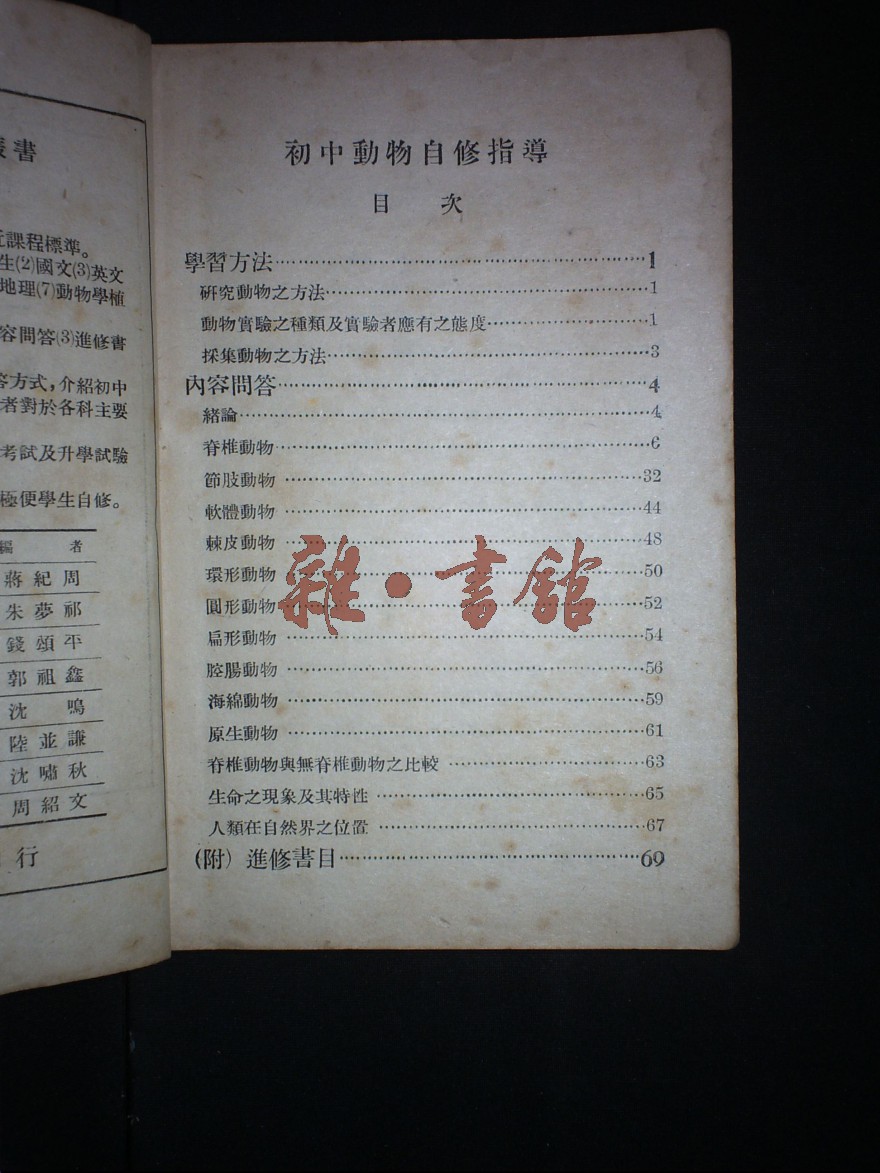 叢書
課程標準。
生(2)國文(3)英文
地理(7)動物學植
容問答(3)進修書
答方式,介紹初中
者對於各科主要
考試及升學試驗
極便學生自修。
編者
蔣紀周
朱夢祁
錢頌平
郭祖鑫
沈鳴
陸並謙
沈嘯秋
周紹文
行
初中動物自修指導
目次
學習方法……1
研究動物之方法……1
動物實驗之種類及實驗者應有之態度……1
採集動物之方法……3
內容問答……4
緒論……4
脊椎動物……6
節肢動物……32
軟體動物……44
棘皮動物……48
環形動物……50
圓形動物……52
扁形動物……54
腔腸動物……56
海綿動物……59
原生動物……61
脊椎動物與無脊椎動物之比較……63
生命之現象及其特性……65
人類在自然界之位置……67
(附)進修書目……69
雜·書館